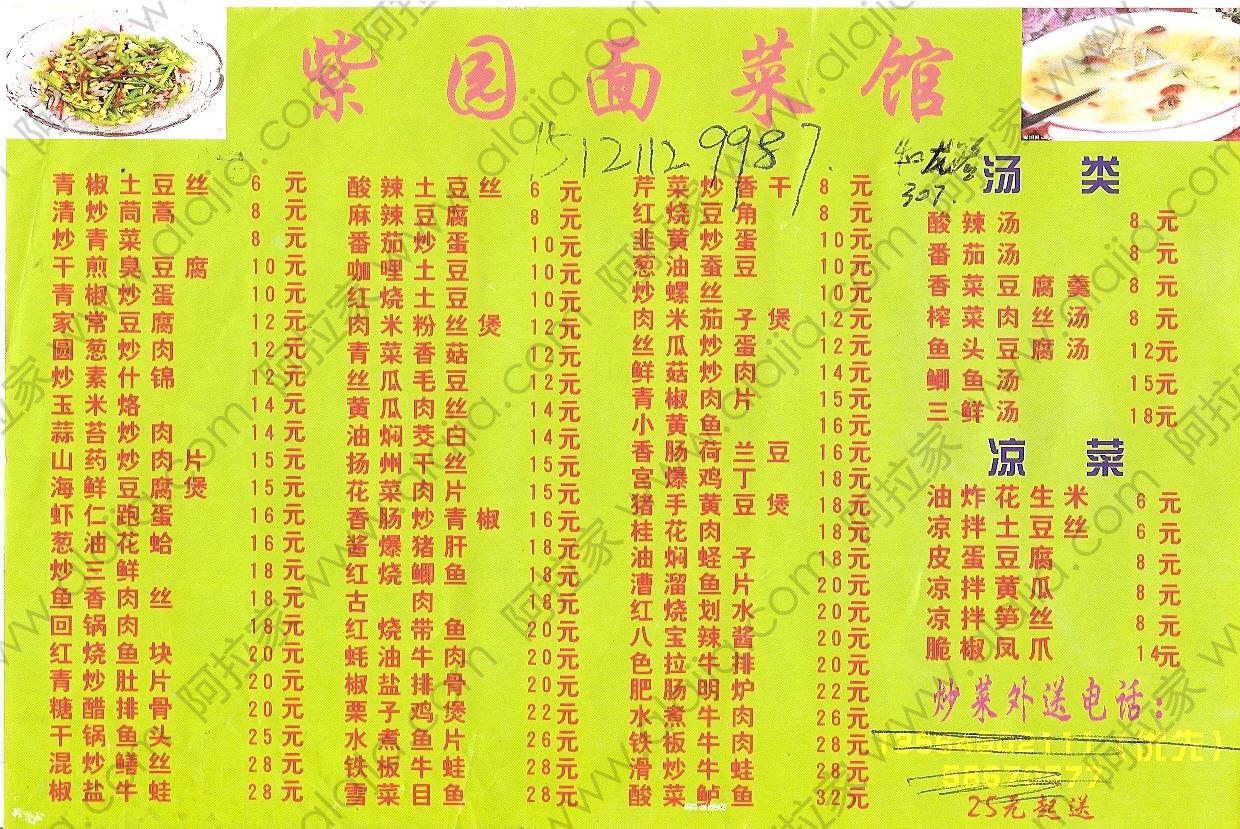 紫园面菜馆
15121129987
307.
青椒土豆丝 6元
清炒茼蒿 8元
炒青菜 8元
干煎臭豆腐 10元
青椒炒蛋 10元
家常豆腐 12元
圆葱炒肉 12元
炒素什锦 12元
玉米烙 14元
蒜苔炒肉 14元
山药炒肉片 15元
海鲜豆腐煲 15元
虾仁跑蛋 16元
葱油花蛤 16元
炒三鲜 18元
鱼香肉丝 18元
回锅肉 18元
红烧鱼块 20元
青炒肚片 20元
糖醋排骨 20元
干锅鱼头 25元
混炒鳝丝 28元
椒盐牛蛙 28元
酸辣土豆丝 6元
麻辣豆腐 8元
番茄炒蛋 10元
咖哩土豆 10元
红烧土豆 10元
肉米粉丝煲 12元
青菜香菇 12元
丝瓜毛豆 12元
黄瓜肉丝 14元
油焖茭白 14元
扬州干丝 15元
花菜肉片 15元
香肠炒青椒 16元
酱爆猪肝 18元
红烧鲫鱼 18元
古 肉 18元
红烧带鱼 20元
蚝油牛肉 20元
椒盐排骨 20元
栗子鸡煲 22元
水煮鱼片 26元
铁板牛蛙 28元
雪菜目鱼 28元
芹菜炒香干 8元
红烧豆角 8元
韭黄炒蛋 10元
葱油蚕豆 10元
炒螺丝 10元
肉米茄子煲 12元
丝瓜炒蛋 12元
鲜菇炒肉 14元
青椒肉片 15元
小黄鱼 16元
香肠荷兰豆 16元
宫爆鸡丁 18元
猪手黄豆煲 18元
桂花肉 18元
油焖蛏子 18元
漕溜鱼片 20元
红烧划水 20元
八宝辣酱 20元
色拉牛排 20元
肥肠明炉 22元
水煮牛肉 26元
铁板牛肉 28元
滑炒牛蛙 28元
酸菜鲈鱼 32元
汤类
酸辣汤 8元
番茄汤 8元
香菜豆腐羹 8元
榨菜肉丝汤 8元
鱼头豆腐汤 12元
鲫鱼汤 15元
三鲜汤 18元
凉菜
油炸花生米 6元
凉拌土豆丝 6元
皮蛋豆腐 8元
凉拌黄瓜 8元
凉拌笋丝 8元
脆椒凤爪 14元
炒菜外送电话：
(优先)
25元起送
阿拉家 www.alajia.com